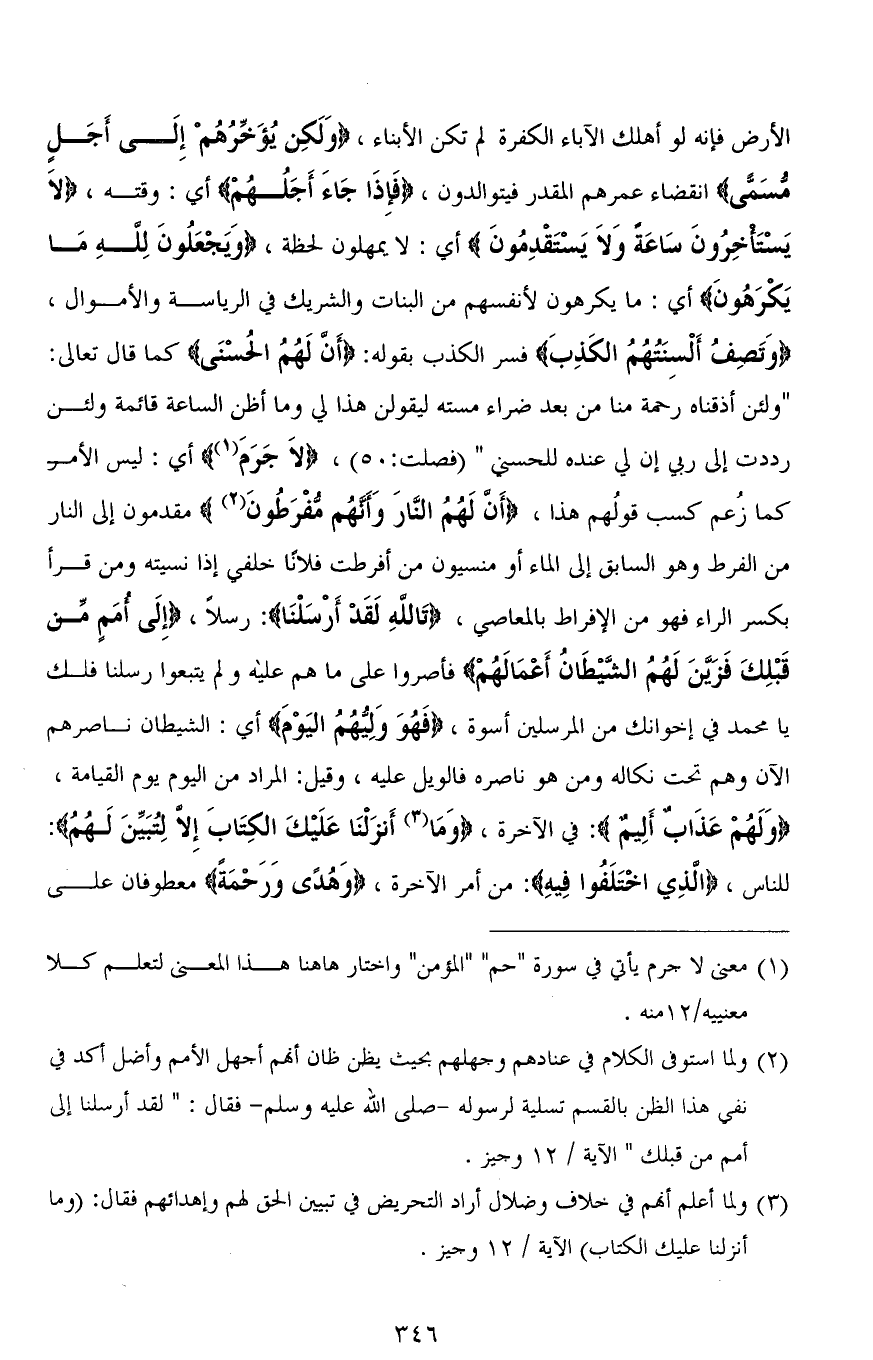 الأرض فإنه لو أهلك الآباء الكفرة لم تكن الأبناء ، ﴿وَلَكِن يُؤَخِّرُهُمْ إِلَـــى أَجَـــلٍ
مُّسَمًّى﴾ انقضاء عمرهم المقدر فيتوالدون ، ﴿فَإِذَا جَاءَ أَجَلُـــهُمْ﴾ أي : وقتـــه ، ﴿لاَ
يَسْتَأْخِرُونَ سَاعَةً وَلاَ يَسْتَقْدِمُونَ ﴾ أي : لا يمهلون لحظة ، ﴿وَيَجْعَلُونَ لِلَّـــهِ مَـــا
يَكْرَهُونَ﴾ أي : ما يكرهون لأنفسهم من البنات والشريك في الرياســـة والأمـــوال ،
﴿وَتَصِفُ أَلْسِنَتُهُمُ الكَذِبَ﴾ فسر الكذب بقوله: ﴿أَنَّ لَهُمُ الحُسْنَى﴾ كما قال تعالى:
"ولئن أذقناه رحمة منا من بعد ضراء مسته ليقولن هذا لي وما أظن الساعة قائمة ولئـــن
رددت إلى ربي إن لي عنده للحسني " (فصلت:٥٠) ، ﴿لاَ جَرَمَ(١)﴾ أي : ليس الأمـر
كما زُعم كسب قولُهم هذا ، ﴿أَنَّ لَهُمُ النَّارَ وَأَنَّهُم مُّفْرَطُونَ(٢) ﴾ مقدمون إلى النار
من الفرط وهو السابق إلى الماء أو منسيون من أفرطت فلانًا خلفي إذا نسيته ومن قـــرأ
بكسر الراء فهو من الإفراط بالمعاصي ، ﴿تَاللَّهِ لَقَدْ أَرْسَلْنَا﴾: رسلاً ، ﴿إِلَى أُمَمٍ مِّـــن
قَبْلِكَ فَزَيَّنَ لَهُمُ الشَّيْطَانُ أَعْمَالَهُمْ﴾ فأصروا على ما هم عليه و لم يتبعوا رسلنا فلـــك
يا محمد في إخوانك من المرسلين أسوة ، ﴿فَهُوَ وَلِيُّهُمُ اليَوْمَ﴾ أي : الشيطان نـــاصرهم
الآن وهم تحت نكاله ومن هو ناصره فالويل عليه ، وقيل: المراد من اليوم يوم القيامة ،
﴿وَلَهُمْ عَذَابٌ أَلِيمٌ ﴾: في الآخرة ، ﴿وَمَا(٣) أَنزَلْنَا عَلَيْكَ الكِتَابَ إِلاَّ لِتُبَيِّنَ لَـهُمُ﴾:
للناس ، ﴿الَّذِي اخْتَلَفُوا فِيهِ﴾: من أمر الآخرة ، ﴿وَهُدًى وَرَحْمَةً﴾ معطوفان علـــى
(١) معنى لا جرم يأتي في سورة "حم" "المؤمن" واختار هاهنا هـــذا المعـــنى لتعلـــم كـــلا
معنييه/١٢منه .
(٢) ولما استوفى الكلام في عنادهم وجهلهم بحيث يظن ظان أنهم أجهل الأمم وأضل أكد في
نفي هذا الظن بالقسم تسلية لرسوله -صلى الله عليه وسلم- فقال : " لقد أرسلنا إلى
أمم من قبلك " الآية / ١٢ وجيز .
(٣) ولما أعلم أنهم في خلاف وضلال أراد التحريض في تبيين الحق لهم وإهدائهم فقال: (وما
أنزلنا عليك الكتاب) الآية / ١٢ وجيز .
٣٤٦